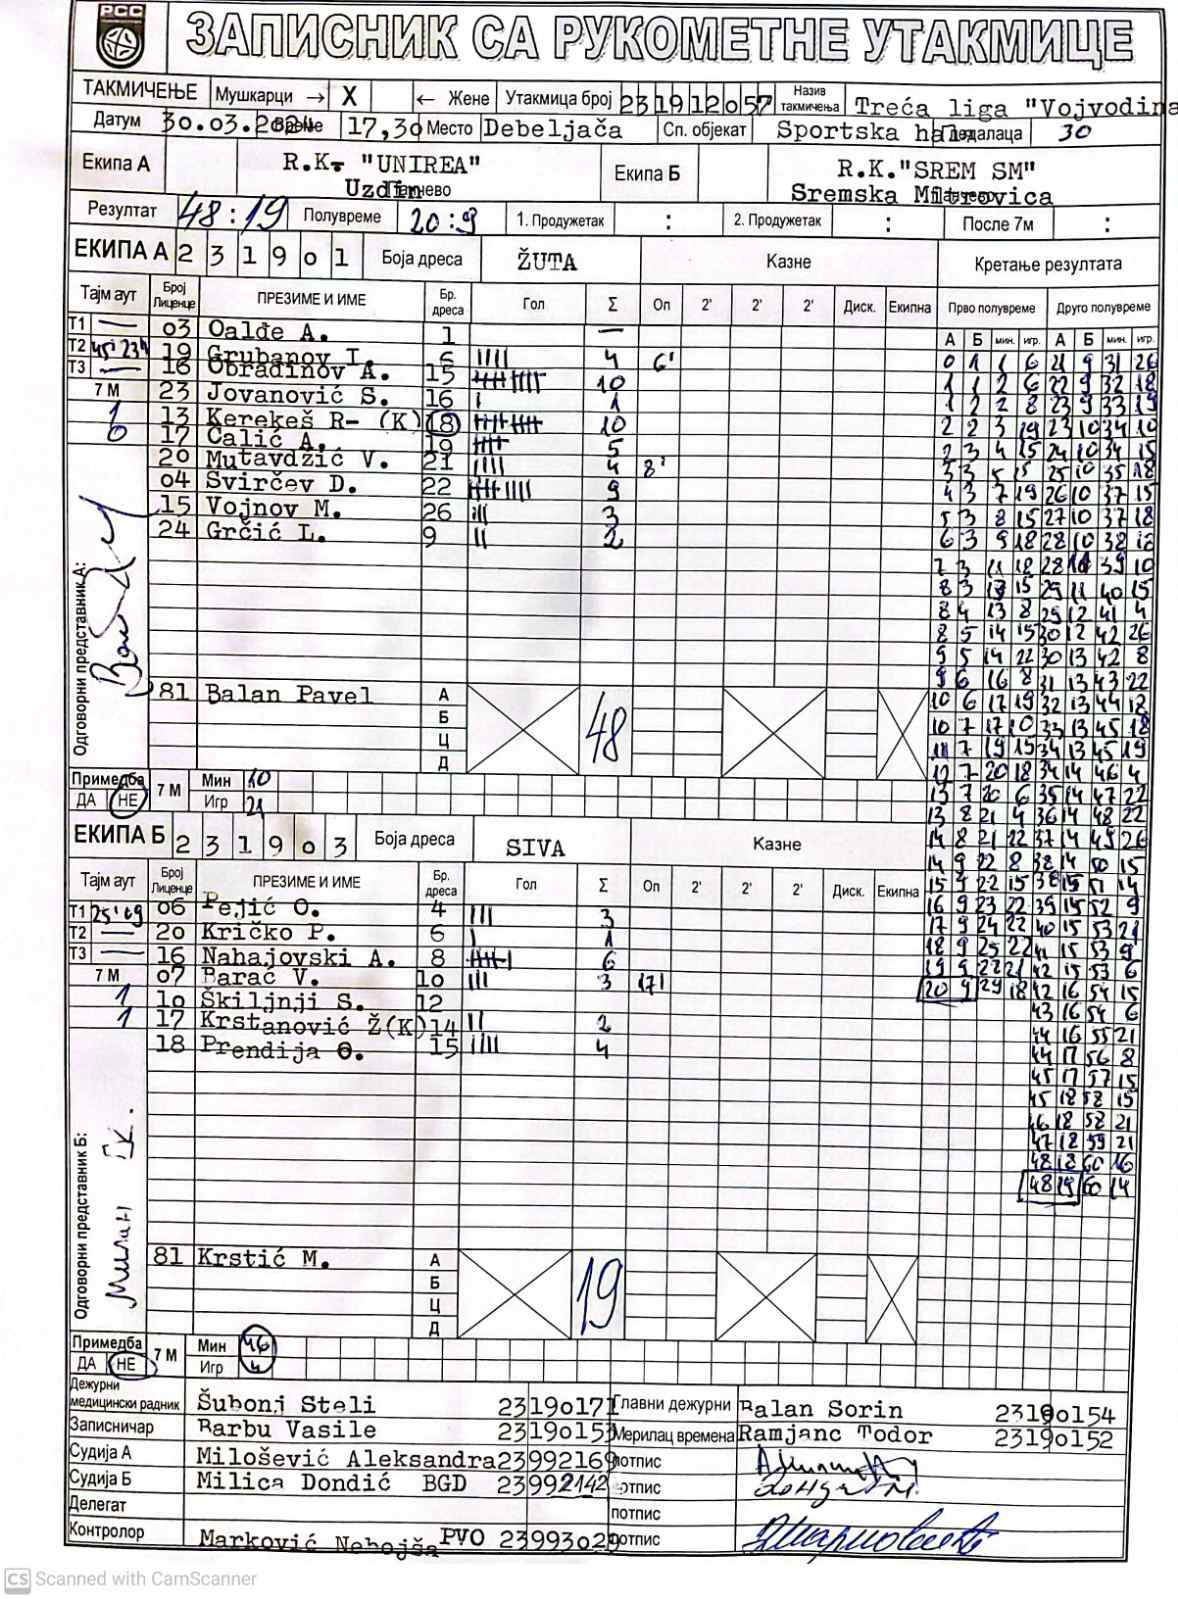 РСС
ЗАПИСНИК СА РУКОМЕТНЕ УТАКМИЦЕ
ТАКМИЧЕЊЕ Мушкарци → X ← Жене Утакмица број 2319120 57 Назив такмичења Treća liga "Vojvodina
Датум 30.03.2024 Време 17,30 Место Debeljača Сп. објекат Sportska hala Гледалаца 30
Екипа А R.K. "UNIREA" Uzdin Екипа Б R.K."SREM SM" Sremska Mitrovica
Резултат 48:19 Полувреме 20:9 1. Продужетак : 2. Продужетак : После 7м :
ЕКИПА А 2 3 1 9 0 1 Боја дреса ŽUTA Казне Кретање резултата
Тајм аут Број Лиценце ПРЕЗИМЕ И ИМЕ Бр. дреса Гол Σ Оп 2' 2' 2' Диск. Екипна Прво полувреме Друго полувреме
А Б мин. игр. А Б мин. игр.
T1 — 03 Oalđe A. 1 —
T2 45'23" 19 Grubanov I. 6 IIII 4 6'
T3 — 16 Obradinov A. 15 10
7 М 23 Jovanović S. 16 I 1
1 13 Kerekeš R- (K) 18 10
0 17 Ćalić A. 19 5
20 Mutavdžić V. 21 IIII 4 8'
04 Svirčev D. 22 9
15 Vojnov M. 26 III 3
24 Grčić L. 9 II 2
0 1 1 6 21 9 31 26
1 1 2 6 22 9 32 18
1 2 2 8 23 9 33 19
2 2 3 19 23 10 34 10
2 3 4 15 24 10 34 15
3 3 5 15 25 10 35 18
4 3 7 19 26 10 37 15
5 3 8 15 27 10 37 18
6 3 9 18 28 10 38 18
7 3 11 18 28 11 39 10
8 3 13 15 29 11 40 15
8 4 13 8 29 12 41 4
8 5 14 15 30 12 42 26
9 5 14 22 30 13 42 8
9 6 16 8 31 13 43 22
10 6 17 19 32 13 44 18
10 7 17 10 33 13 45 18
11 7 19 15 34 13 45 19
12 7 20 18 34 14 46 4
13 7 20 6 35 14 47 22
13 8 21 4 36 14 48 22
14 8 21 22 37 14 49 26
14 9 22 8 38 14 50 15
15 9 22 15 38 15 51 14
16 9 23 22 39 15 52 9
17 9 24 22 40 15 53 21
18 9 25 22 41 15 53 9
19 9 27 21 42 15 53 6
20 9 29 18 42 16 54 15
43 16 54 6
44 16 55 21
44 17 56 8
45 17 57 15
45 18 58 15
46 18 58 21
47 18 59 21
48 18 60 16
48 19 60 14
Одговорни представник А:
81 Balan Pavel А Б Ц Д 48
Примедба ДА НЕ 7 М Мин 10
Игр 21
ЕКИПА Б 2 3 1 9 0 3 Боја дреса SIVA Казне
Тајм аут Број Лиценце ПРЕЗИМЕ И ИМЕ Бр. дреса Гол Σ Оп 2' 2' 2' Диск. Екипна
T1 25'09 06 Pejić O. 4 III 3
T2 — 20 Kričko P. 6 I 1
T3 — 16 Nahajovski A. 8 6
7 М 07 Barać V. 10 III 3 17'
1 10 Škiljnji S. 12
1 17 Krstanović Ž(K) 14 II 2
18 Prendija O. 15 IIII 4
Одговорни представник Б:
Милан
81 Krstić M. А Б Ц Д 19
Примедба ДА НЕ 7 М Мин 46
Игр 4
Дежурни медицински радник Šubonj Steli 23190171 Главни дежурни Balan Sorin 23190154
Записничар Barbu Vasile 23190153 Мерилац времена Ramjanc Todor 23190152
Судија А Milošević Aleksandra 23992169 потпис
Судија Б Milica Dondić BGD 23992142 потпис
Делегат потпис
Контролор Marković Nebojša PVO 23993029 потпис
CS Scanned with CamScanner